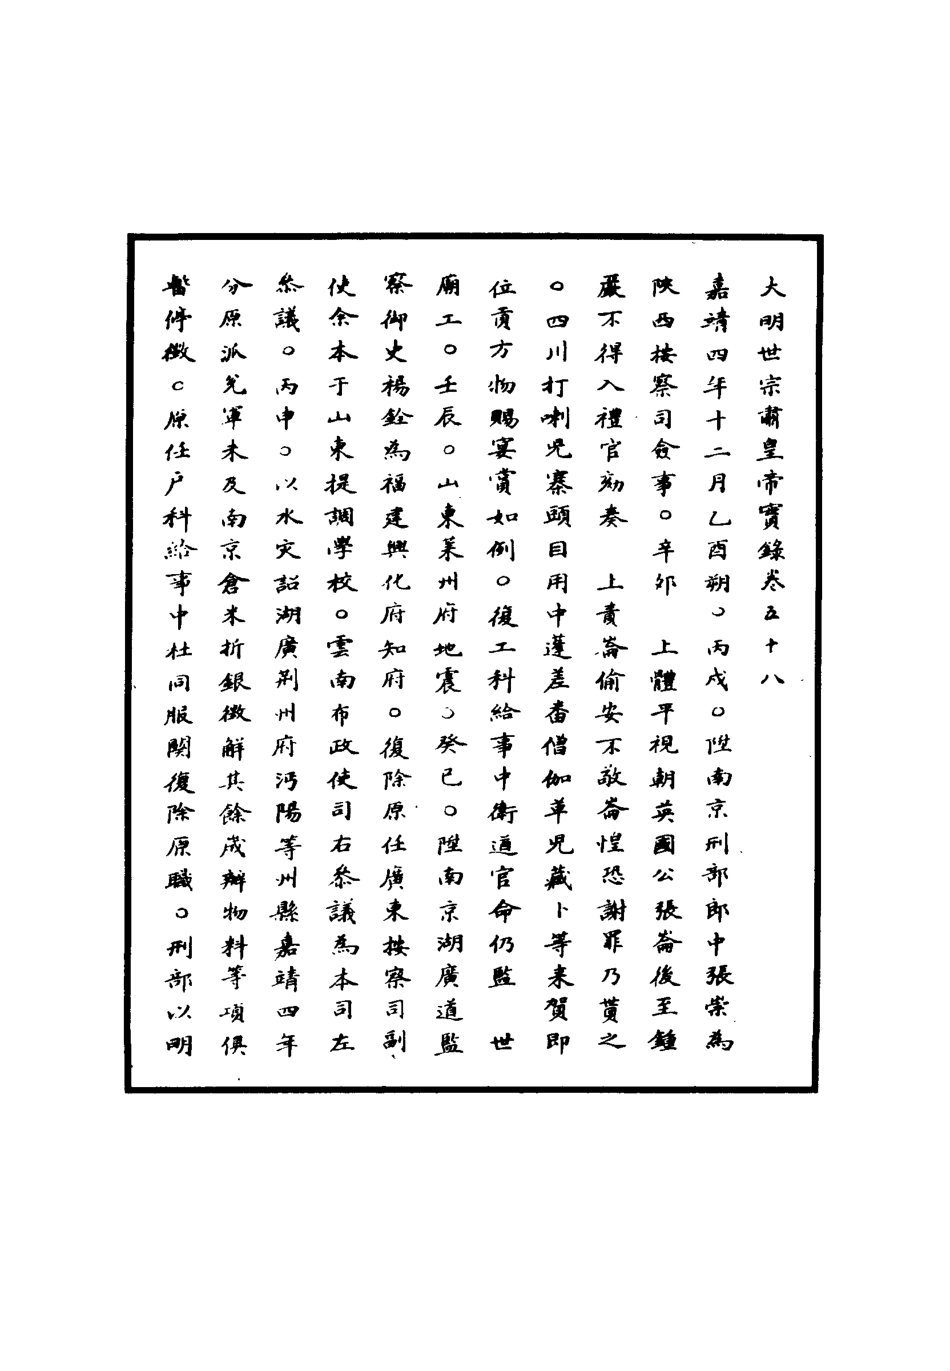 大明世宗肅皇帝寶錄卷五十八
嘉靖四年十二月乙酉朔○丙戍○陞南京刑部郎中張崇為
陝西按察司僉事○辛卯　上體平視朝英國公張崙後至鐘
嚴不得入禮官劾奏　上責崙偷安不敬崙惶恐謝罪乃貰之
○四川打喇児寨頭目用中蓬差畨僧伽革児藏卜等来賀即
位貢方物賜宴賞如例○復工科給事中衛道官命仍監　世
廟工○壬辰○山東萊州府地震○癸已○陞南京湖廣道監
察御史楊銓為福建興化府知府○復除原任廣東按察司副
使余本于山東提調學校○雲南布政使司右叅議為本司左
叅議○丙申○以水灾詔湖廣荆州府沔陽等州縣嘉靖四年
分原派兊軍米及南京倉米折銀徴解其餘歲辦物料等項俱
暫停徴○原任户科給事中杜同服闋復除原職○刑部以明